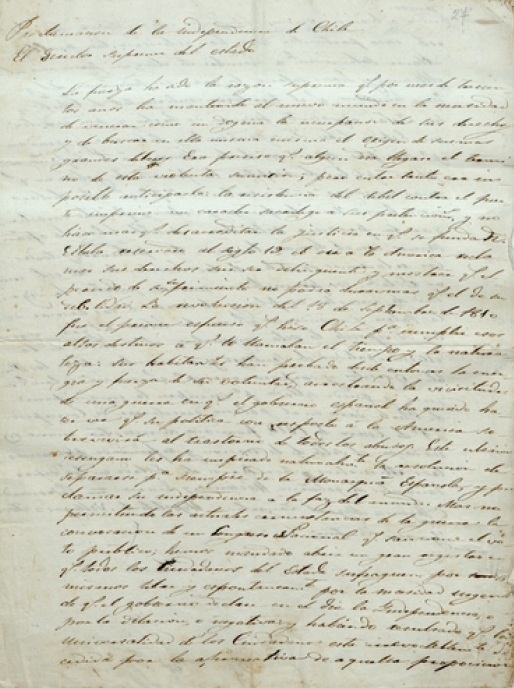 24
Proclamacion de la independencia de Chile
El Director Supremo del estado
La fuerza ha sido la razon suprema qe por mas de trescien
tos años ha mantenido al nuevo mundo en la necesidad
de venerar como un dogma la usurpacion de sus derechos
y de buscar en ella misma el origen de sus mas
grandes deberes. Era preciso qe algun dia llegase el termi
no de esta violenta sumision; pero entre tanto era im
posible anticiparla: la resistencia del debil contra el fuer
te imprime un caracter sacrilego a sus pretenciones, y no
hace mas qe desacreditar la justicia en qe se funda. Es
taba reservado al siglo 19 el oir a la America recla
mar sus derechos sin ser delinquente y mostrar qe el
periodo de su sufrimiento no podia durar mas qe el de su
debilidad. La revolucion del 18 de Septiembre de 1810
fue el primer esfuerzo qe hizo Chile pa cumplir esos
altos destinos a qe lo llamaba el tiempo y la natura
leza: sus habitantes han probado desde entonces la ener
gia y firmeza de su voluntad, arrostrando las vicisitudes
de una guerra en qe el gobierno español ha querido ha
cer ver qe su politica con respecto a la America so
brevivirá al trastorno de todos los abusos. Este ultimo
desengaño les ha inspirado naturalmte la resolucion de
separarse pa siempre de la Monarquia Española, y pro
clamar su independencia a la faz del mundo. Mas no
permitiendo las actuales circunstancias de la guerra la
convocacion de un Congreso Nacional qe sancione el vo
to publico; hemos mandado abrir un gran registro en
qe todos los Ciudadanos del Estado sufraguen por
mismos libre y espontaneamte por la necesidad urgente
de qe el gobierno declare en el dia la Independencia, o
por la dilacion, o negativa; y habiendo resultado qe la
Universalidad de los Ciudadanos esta irrevocablemte de
cidida por la afirmativa de aquella proposicion